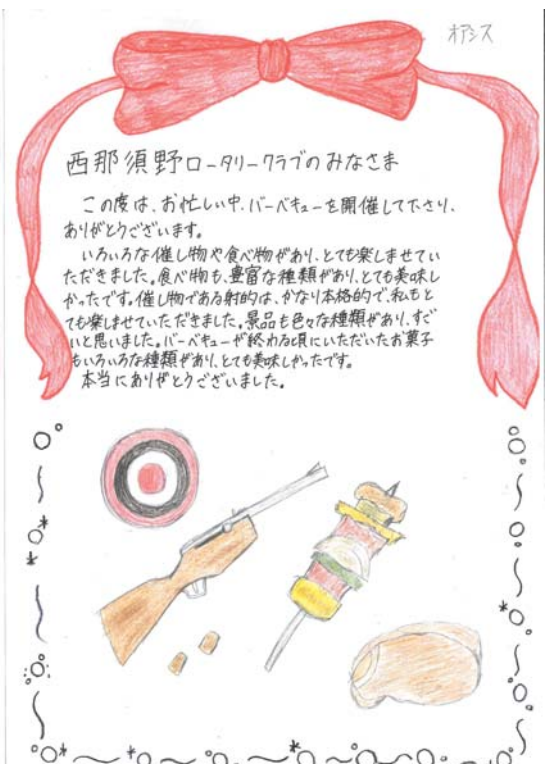 オアシス
西那須野ロータリークラブのみなさま
この度は、お忙しい中、バーベキューを開催して下さり、
ありがとうございます。
いろいろな催し物や食べ物があり、とても楽しませてい
ただきました。食べ物も、豊富な種類があり、とても美味し
かったです。催し物である射的は、かなり本格的で、私もと
ても楽しませていただきました。景品も色々な種類があり、すご
いと思いました。バーベキューが終わる頃にいただいたお菓子
もいろいろな種類があり、とても美味しかったです。
本当にありがとうございました。